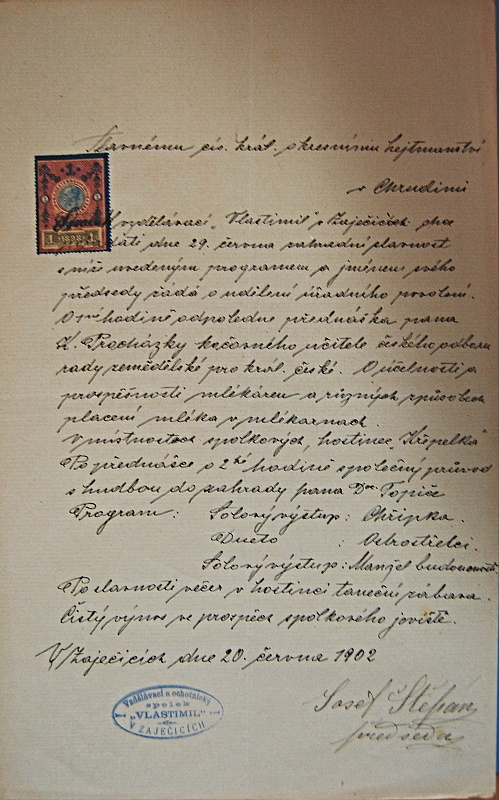 Slavnému cís. král. okresnímu hejtmanství
v Chrudimi
1 1898 1
Spolek vzdělávací „Vlastimil" v Zaječicích chce
pořádati dne 29. června zahradní slavnost
s níže uvedeným programem a jménem svého
předsedy žádá o udělení úřadního povolení.
O 1vé hodině odpoledne přednáška pana
K. Procházky kočovného učitele českého odboru
rady zemědělské pro král. české. O účelnosti a
prospěšnosti mlékáren a různých způsobech
placení mléka v mlékarnach.
V místnostech spolkových, hostinec „Křepelka"
Po přednášce o 2hé hodině společný průvod
s hudbou do zahrady pana Dra Topiče
Program: Sólový výstup: Chřipka.
Dueto: Ostrostřelci.
Sólový výstup: Manžel budoucnosti
Po slavnosti večer v hostinci taneční zábava.
Čistý výnos ve prospěch spolkového jeviště.
V Zaječicích dne 20. června 1902
Josef Štěpán,
předseda
Vzdělávací a ochotnický
spolek
„VLASTIMIL"
V ZAJEČICÍCH